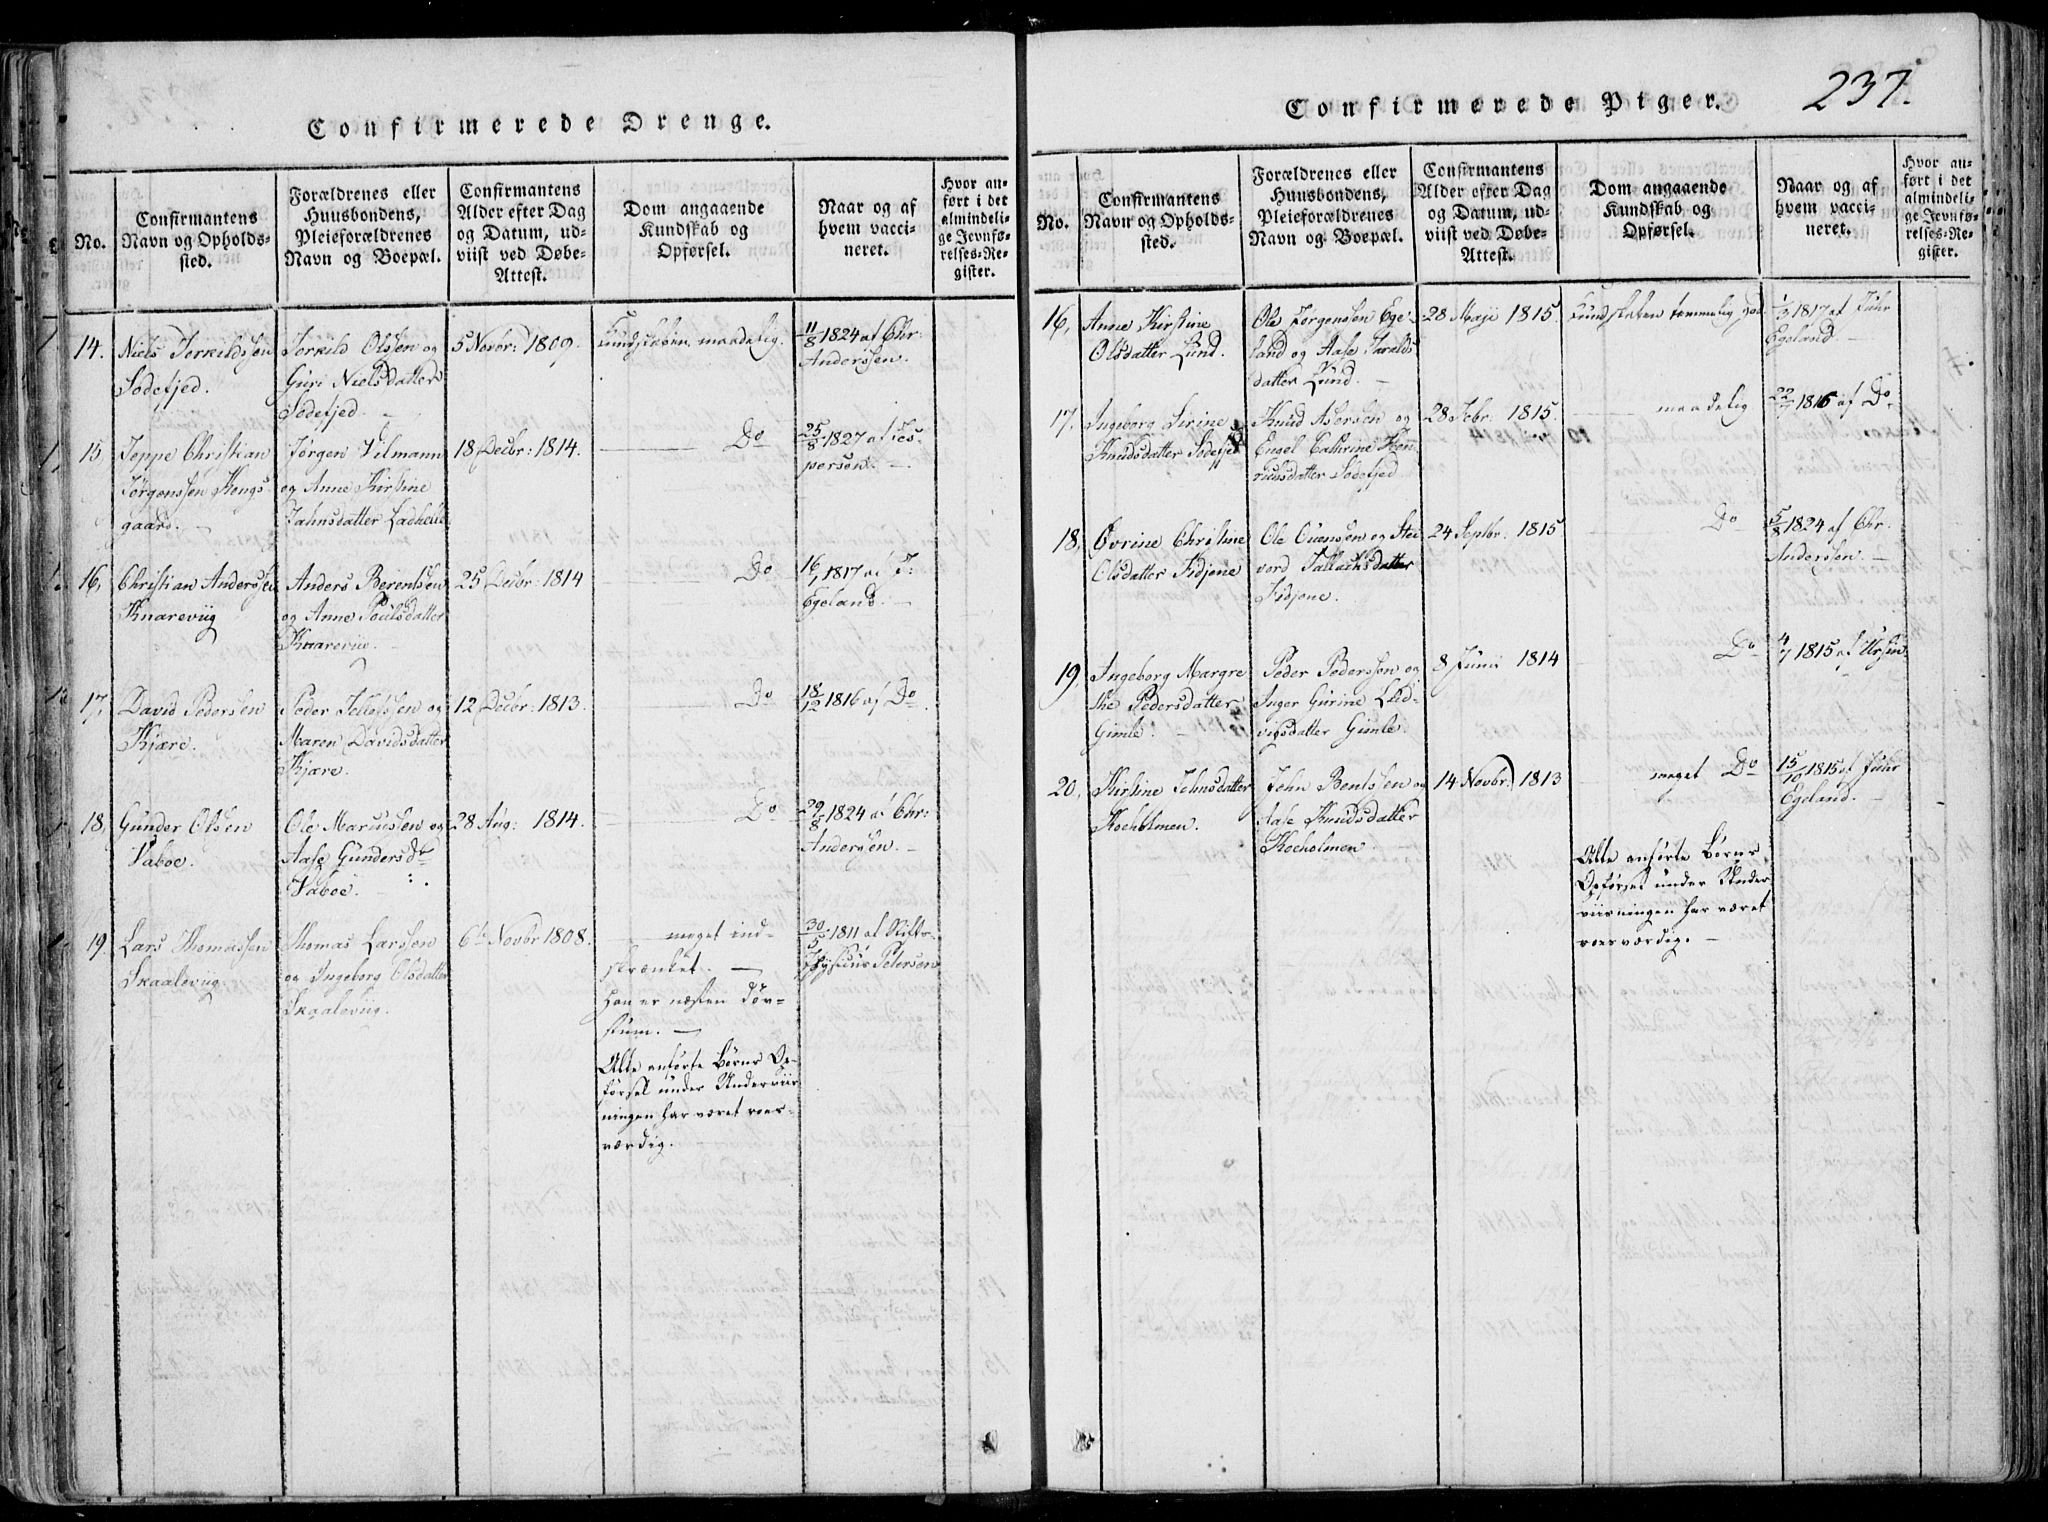 Confirmerede Drenge.
No.
Confirmantens
Navn og Opholds-
sted.
Forældrenes eller
Huusbondens,
Pleieforældrenes
Navn og Boepæl.
Confirmantens
Alder efter Dag
og Datum, ud-
viist ved Døbe-
Attest.
Dom angaaende
Kundskab og
Opførsel.
Naar og af
hvem vacci-
neret.
Hvor an-
ført i det
almindeli-
ge Jevnfø-
relses-Re-
gister.
14. Niels Terkildssen
Sødefjed.
Terkild Olssen og
Guri Nielsdatter
Sødefjed.
5 Novbr: 1809.
Kundskaben maadelig.
11/8 1824 af Chr:
Anderssen.
15. Jeppe Christian
Jørgenssen Kongs
gaard.
Jørgen Vilmann
og Anne Kirstine
Jahnsdatter
18 Decbr: 1814.
Do
25/8 1827 af Jes-
persen.
16, Christian Anderssen
Knareviig
Anders Berentssen
og Anne Poulsdatter
Knareviig.
25 Decbr: 1814
Do
16/1 1817 af J:
Egeland.
17, David Pedersen
Kjære.
Peder Tellefssen og
Maren Davidsdatter
Kjære.
12 Decbr: 1813.
Do
18/12 1816 af Do
18, Gunder Olsen
Vaboe.
Ole Mariussen og
Aase Gundersdr
Vaboe.
28 Aug: 1814.
Do
29/8 1824 af Chr:
Andersen.
19. Lars Thomassen
Skaaleviig.
Thomas Larssen
og Ingeborg Olsdatter
Skaaleviig.
6te Novbr 1808.
meget ind-
skrænket.
han er næsten døv-
stum.
Alle anførte Børns Op-
førsel under Underviis
ningen har været roes-
værdig.
30/5 1811 af Stifts-
Physicus Petersen
Confirmerede Piger.
237.
No.
Confirmantens
Navn og Opholds-
sted.
Forældrenes eller
Huusbondens,
Pleieforældrenes
Navn og Boepæl.
Confirmantens
Alder efter Dag
og Datum, ud-
viist ved Døbe-
Attest.
Dom angaaende
Kundskab og
Opførsel.
Naar og af
hvem vacci-
neret.
Hvor an-
ført i det
almindeli-
ge Jevnfø-
relses-Re-
gister.
16, Anne Kirstine
Olsdatter Lund.
Ole Jørgenssen Ege-
land og Aase Taralds
datter Lund.
28 Maji 1815.
Kundskaben temmelig god.
1/3 1817 af
Egeland.
17. Ingeborg Sirine
Knudsdatter Sødefjed
Knud Asersen og
Engel Cathrine Hen
richsdatter Sødefjed
28 Febr. 1815.
maadelig
22/7 1816 af Do
18, Øvrine Christine
Olsdatter Fidjone
Ole Ouensen og
Tallachsdatter
Fidjone.
24 Septbr. 1815
Do
5/8 1824 af Chr.
Anderssen.
19, Ingeborg Margre
the Pedersdatter
Gimle.
Peder Pederssen og
Inger Gurine Lud-
vigsdatter Gimle.
8 Junii 1814
Do
4/7 1815 af
20, Kirstine Johnsdatter
Kocholmen.
John Bentssen og
Aase Knudsdatter
Kocholmen
14 Novbr. 1813
meget Do
15/10 1815 af
Egeland.
Alle anførte Børns
Opførsel under Under
viisningen har været
roesværdig.